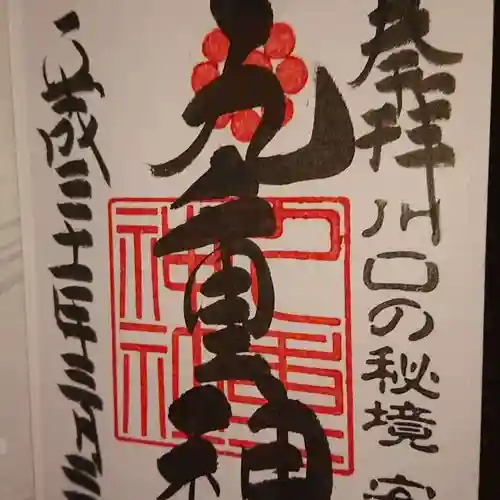 奉拝 川口の秘境
九重神
平成三十年三月
九重神社